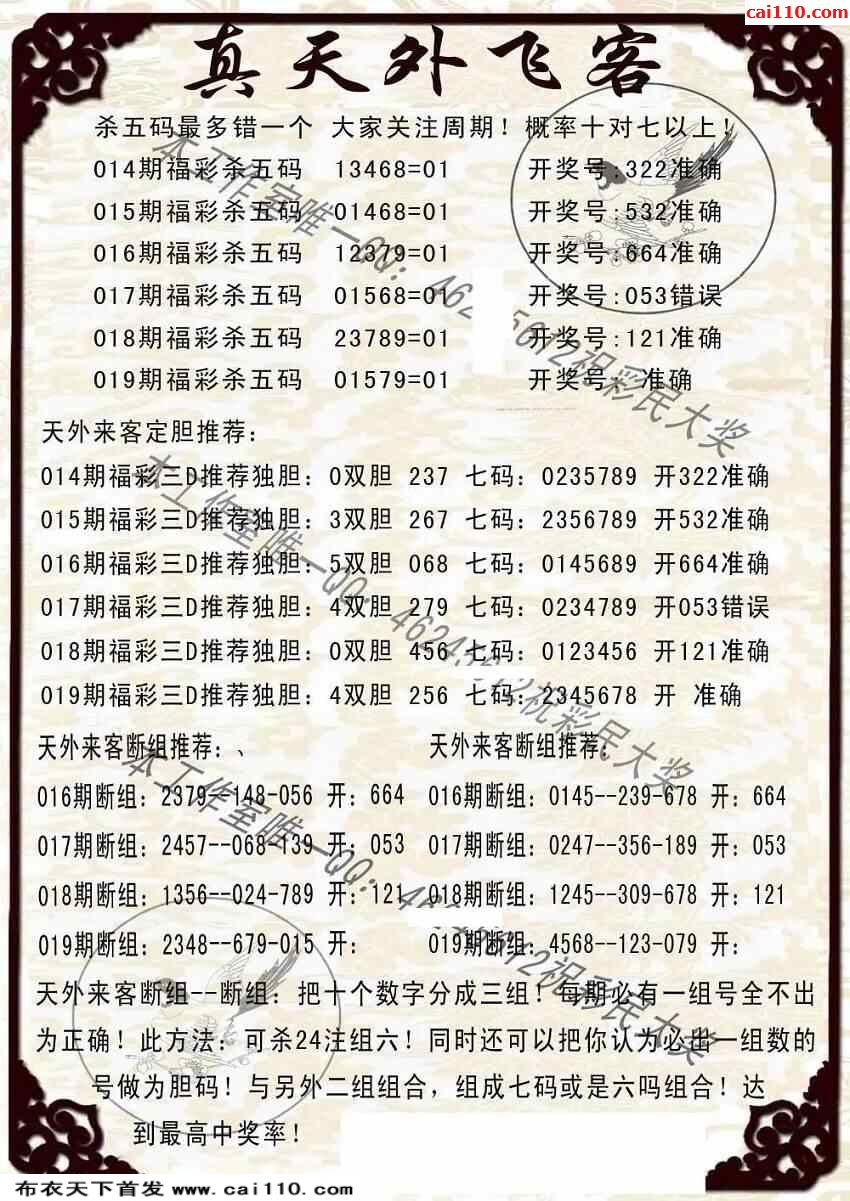 cai110.com
真天外飞客
杀五码最多错一个 大家关注周期！概率十对七以上！
014期福彩杀五码 13468=01 开奖号:322准确
015期福彩杀五码 01468=01 开奖号:532准确
016期福彩杀五码 12379=01 开奖号:664准确
017期福彩杀五码 01568=01 开奖号:053错误
018期福彩杀五码 23789=01 开奖号:121准确
019期福彩杀五码 01579=01 开奖号: 准确
天外来客定胆推荐：
014期福彩三D推荐独胆：0双胆 237 七码：0235789 开322准确
015期福彩三D推荐独胆：3双胆 267 七码：2356789 开532准确
016期福彩三D推荐独胆：5双胆 068 七码：0145689 开664准确
017期福彩三D推荐独胆：4双胆 279 七码：0234789 开053错误
018期福彩三D推荐独胆：0双胆 456 七码：0123456 开121准确
019期福彩三D推荐独胆：4双胆 256 七码：2345678 开 准确
天外来客断组推荐：、 天外来客断组推荐：
016期断组：2379--148-056 开：664 016期断组：0145--239-678 开：664
017期断组：2457--068-139 开：053 017期断组：0247--356-189 开：053
018期断组：1356--024-789 开：121 018期断组：1245--309-678 开：121
019期断组：2348--679-015 开： 019期断组：4568--123-079 开：
天外来客断组--断组：把十个数字分成三组！每期必有一组号全不出
为正确！此方法：可杀24注组六！同时还可以把你认为必出一组数的
号做为胆码！与另外二组组合，组成七码或是六吗组合！达
到最高中奖率！
本工作室唯一QQ：462 5612祝彩民大奖
本工作室唯一QQ：4624 612祝彩民大奖
本工作室唯一QQ：46 5612祝彩民大奖
布衣天下首发 www.cai110.com